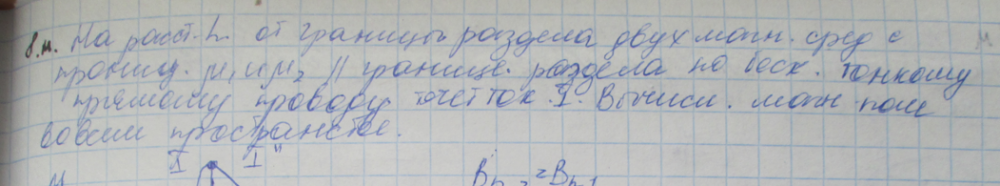 8.н. На расст. h. от границы раздела двух магн. сред с
прониц. μ₁ и μ₂ // границе раздела по беск. тонкому
прямому проводу течет ток I. Вычисл. магн поле
во всем пространстве.
I I"
Bn₂ = Bn₁